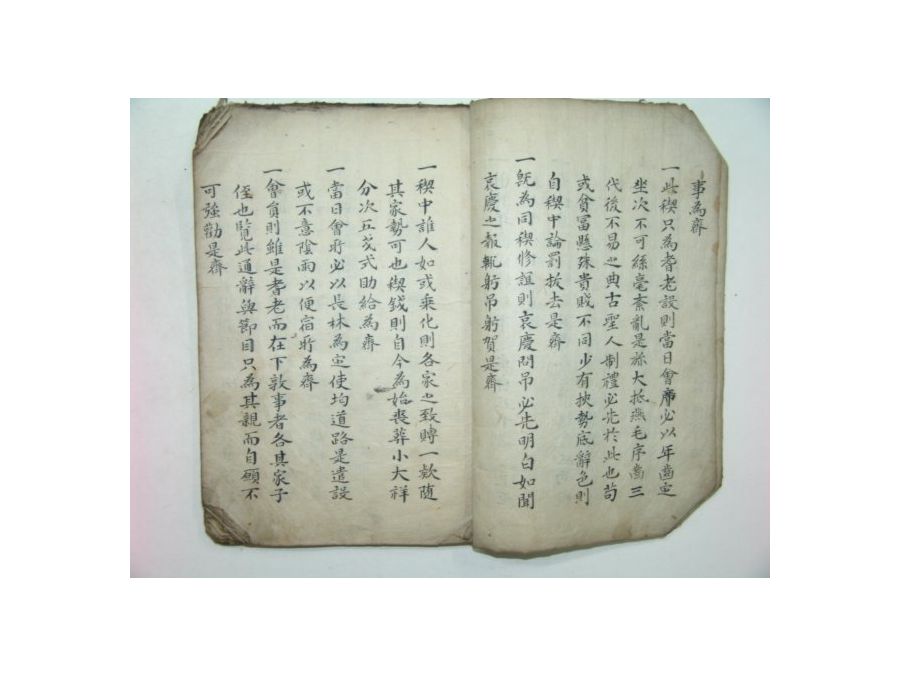 事為齊
一此稧只為耆老設則當日會席必以年齒定
坐次不可絲毫紊亂是旀大抵燕毛序齒三
代後不易之典古聖人制禮必先於此也苟
或貧富懸殊貴賤不同少有挾勢底辭色則
自稧中論罰拔去是齊
一旣為同稧修誼則哀慶問吊必先明白如聞
哀慶之報輒躬吊躬賀是齊
一稧中誰人如或乘化則各家之致賻一款随
其家勢可也稧錢則自今為始喪葬小大祥
分次五戔式助給為齊
一當日會所必以長林為定使均道路是遣設
或不意陰雨以便宿所為齊
一會員則雖是耆老而在下敦事者各其家子
侄也覽此通辭與節目只為其親而自願不
可強勸是齊